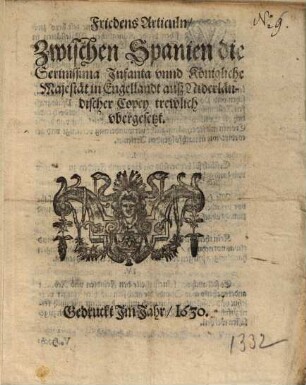 N. 9.
Friedens Articuln/
Zwischen Spanien die
Serinißima Infanta vnnd Königliche
Majestät in Engellandt auß Niderlän-
discher Copey trewlich
vbergesetzt.
Gedruckt Im Jahr/ 1630.
1332